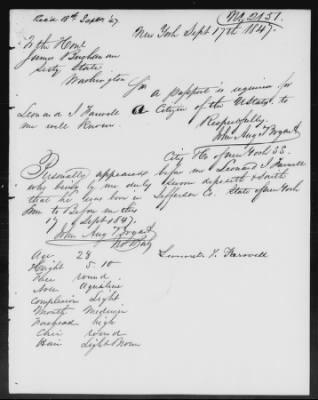 Rec'd 18th Sept '47
No 2151.
New York Sept 17th 1847.
To the Hon
James Buchanan
Secty State
Washington
for
a passport is required for
Leonard J Farwell a Citizen of the U States. to
me well known.
Respectfully.
John Aug T Bryant
City & Co of New York S.S.
Personally appeared before me Leonard J Farwell
who being by me duly sworn deposeth & saith
that he was born in Jefferson Co. State of New York
Sworn to Before me this
17 of Sept 1847.
John Aug T Bryant
Not Pub
Leonard J. Farwell
Age 28
Height 5 10
Face round
Nose Aquiline
Complexion Light
Mouth Medium
Forehead high
Chin round
Hair Light Brown